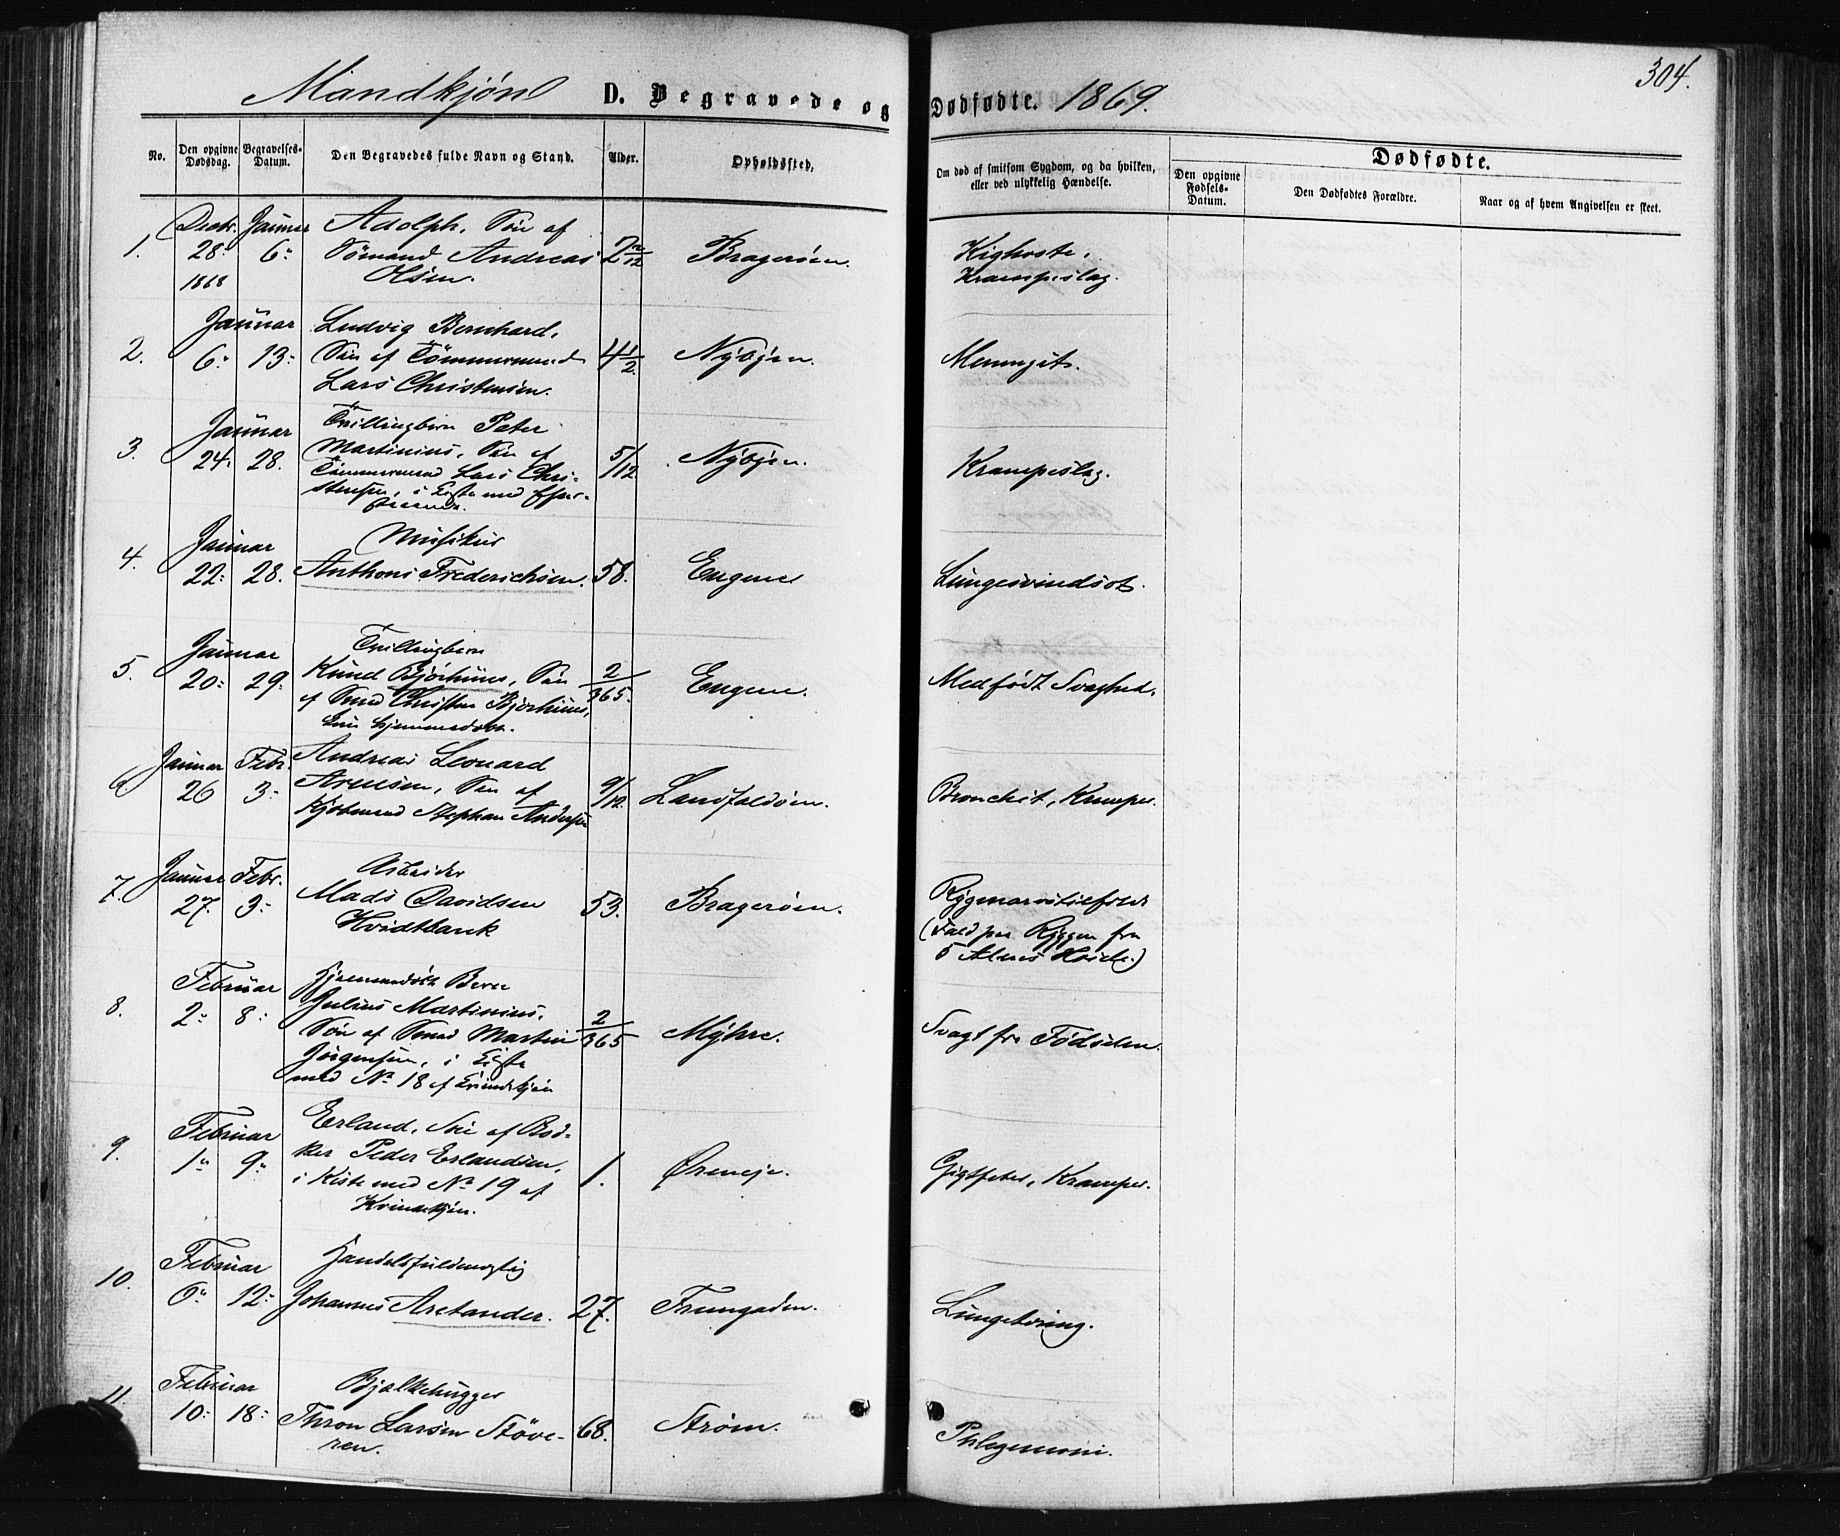 304.
Mandkjøn D. Begravede og Dødfødte. 1869.
No.
Den opgivne Dødsdag.
Begravelses-Datum.
Den Begravedes fulde Navn og Stand.
Alder.
Opholdssted.
Om død af smitsom Sygdom, og da hvilken,
eller ved ulykkelig Hændelse.
Dødfødte.
Den opgivne Fødsels-Datum.
Den Dødfødtes Forældre.
Naar og af hvem Angivelsen er skeet.
1. Decbr. 28. 1868 Januar 6.
Adolph, Søn af
Sømand Andreas
Olsen.
2 2/12 Bragerøen.
Kighoste,
Krampeslag.
2. Januar 6. 13.
Ludvig Bernhard,
Søn af Tømmermand
Lars Christensen.
4 1/2 Nybyen.
Meningit.
3. Januar 24. 28.
Tvillingbarn Peter
Martinius, Søn af
Tømmermand Lars Chri-
stensen, i Kiste med
5/12 Nybyen.
Krampeslag.
4. Januar 22. 28.
Musikus
Anthoni Frederichsen.
58. Engene
Lungesvindsot.
5. Januar 20. 29.
Tvillingbarn
Knud Bjørhuus, Søn
af Smed Christen Bjørhuus,
hjemmedøbt.
2/365. Engene.
Medfødt Svaghed.
6 Januar 26 Febr. 3.
Andreas Leonard
Arensen, Søn af
Kjøbmand Stephan Andersen
9/12. Landfaldøen.
Bronchit, Kramper.
7. Januar 27. Febr. 3.
Arbeider
Mads Davidsen
Hvidtbank
53. Bragerøen.
(Fald paa Ryggen fra
5 Alens Høide.)
8. Februar 2. 8.
Hjemmedøbt Barn
Julius Martinius,
Søn af Smed Martin
Jørgensen, i Kiste
med No 18 af Kvindekjøn
2/365 Myhre.
Svagt fra Fødselen.
9. Februar 1. 9.
Erland, Søn af Bød-
ker Peder Erlandsen,
i Kiste med No 19 af
Kvindekjøn.
1. Øreneje.
Gigtfeber, Kramper.
10. Februar 6. 12.
Handelsfuldmægtig
Johannes Arctander.
27. Frungaden.
Lungetæring.
11. Februar 10. 18.
Bjelkehugger
Thron Larsen Støve-
ren.
68. Strøm.
Phlegmoni.